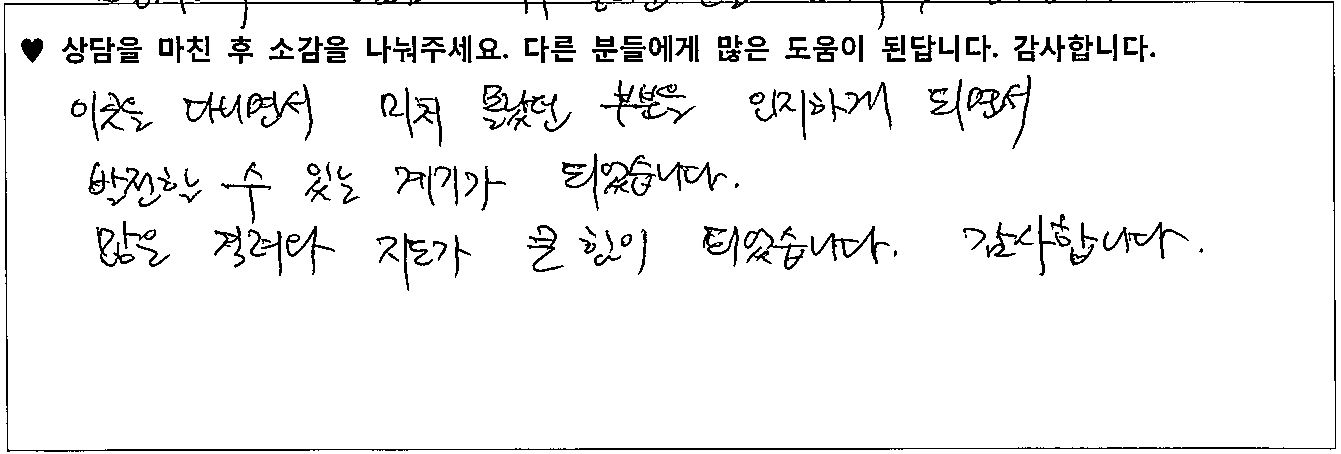 ♥ 상담을 마친 후 소감을 나눠주세요. 다른 분들에게 많은 도움이 된답니다. 감사합니다.
이곳을 다니면서 미처 몰랐던 부분을 인지하게 되면서
발전할 수 있는 계기가 되었습니다.
많은 격려와 지도가 큰 힘이 되었습니다. 감사합니다.